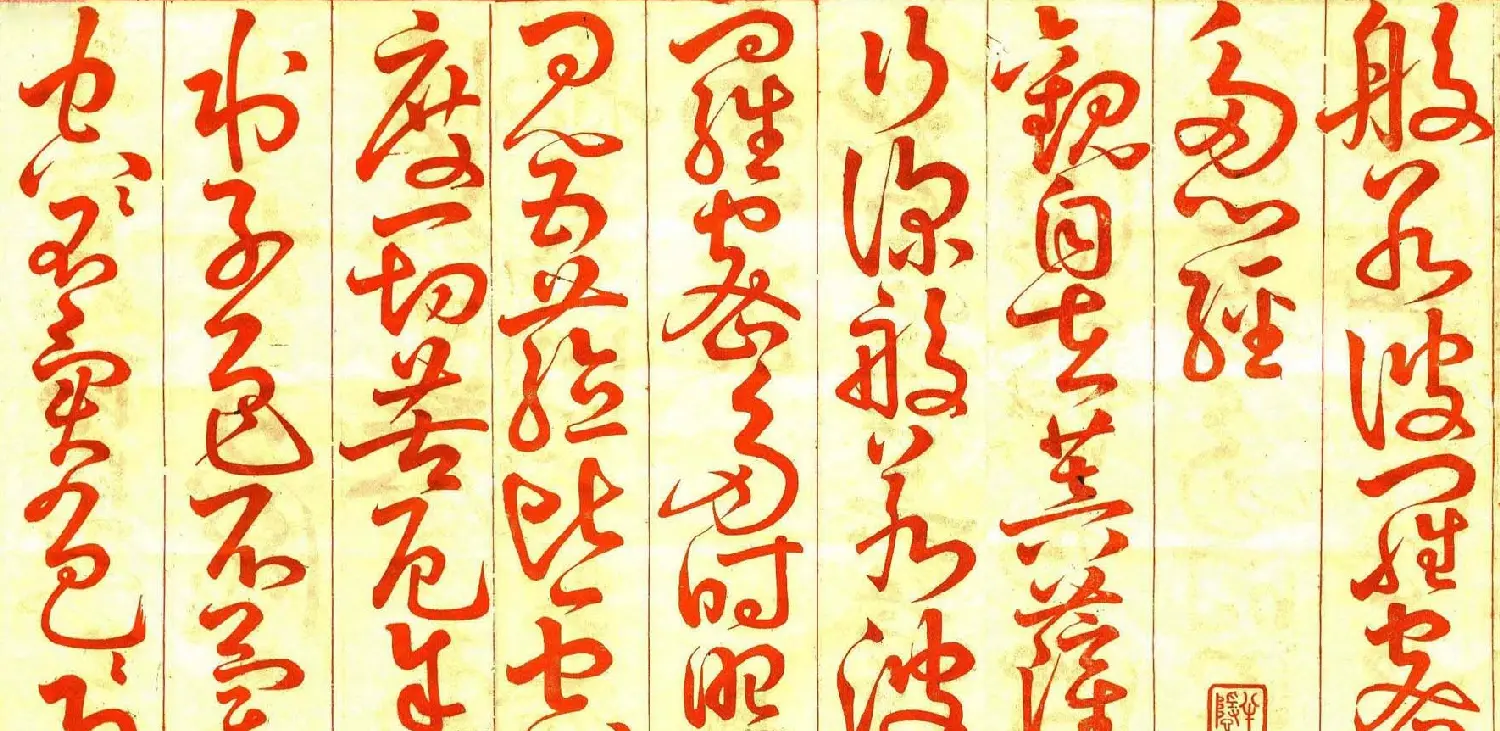 般若波羅蜜
多心經
觀自在菩薩
行深般若波
羅蜜多時照
見五蘊皆空
度一切苦厄舍
利子色不異
空〻不異色〻不